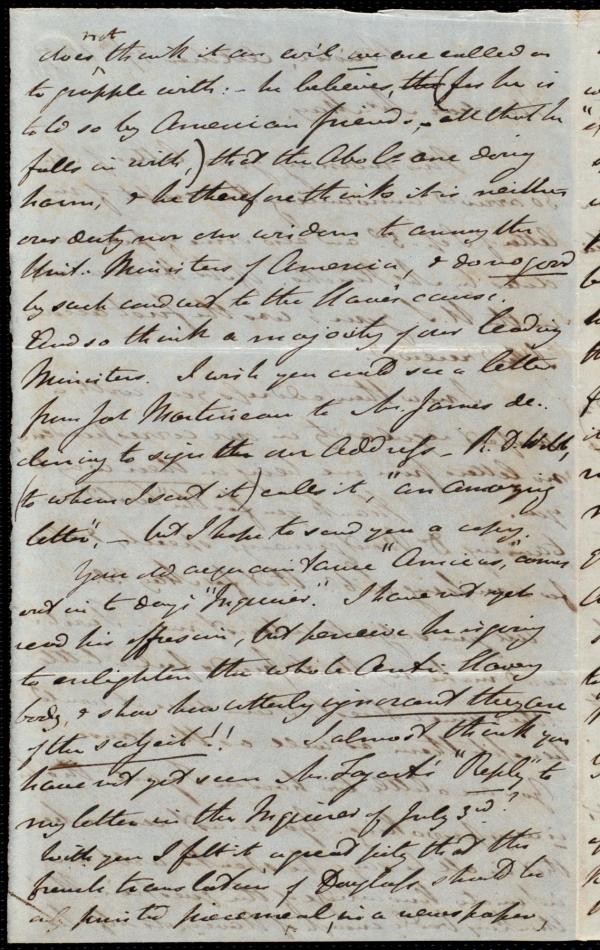 not
does think it an evil we are called on
to grapple with: - he believes, (for he is
told so by American friends, - all that he
falls in with,) that the Abolts are doing
harm, & he therefore thinks it is neither
our duty nor our wisdom to annoy the
Unit. Ministers of America, & do no good
by such conduct to the slave's cause.
And so think a majority of our leading
Ministers. I wish you could see a letter
from Jas Martineau to Mr. James de-
clining to sign the our Address - R. D. Webb,
(to whom I sent it) calls it, "an annoying
letter", - but I hope to send you a copy.
Your old acquaintance "Amicus, comes
out in to day's "Inquirer". I have not yet
read his effusion, but perceive he is going
to enlighten the whole Anti Slavery
body, & show how utterly ignorant they are
of the subject!! I almost think you
have not yet seen Mr. "Reply" to
my letter in the Inquirer of July 3rd?
With you I felt it a great pity that the
french translation of Douglass should be
only printed piecemeal, in a newspaper,